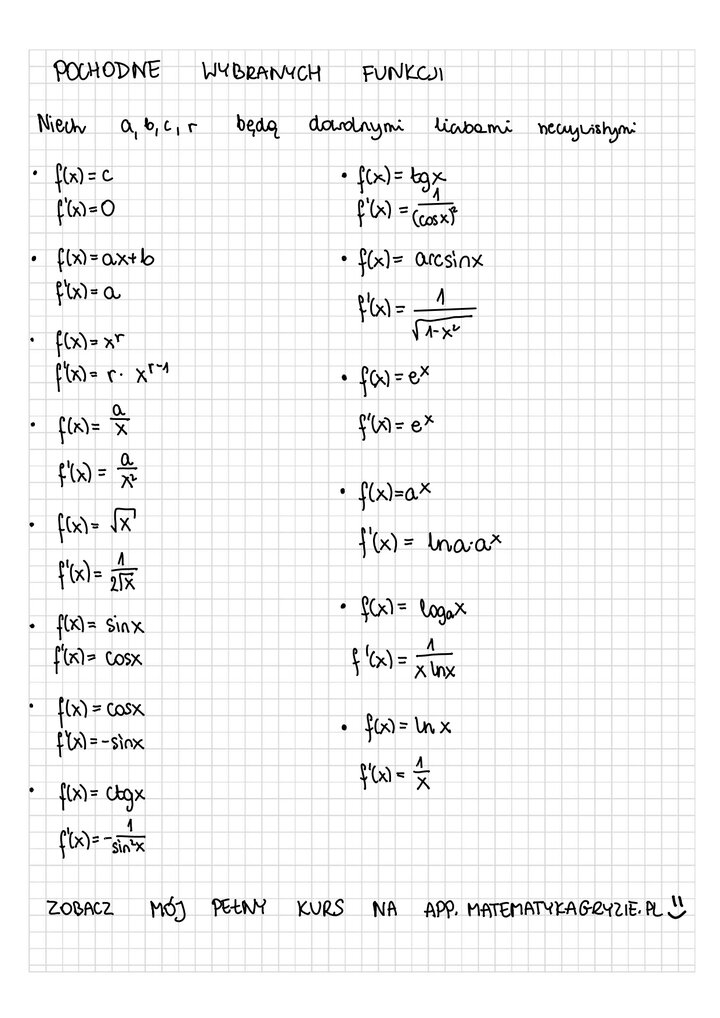 POCHODNE WYBRANYCH FUNKCJI
Niech a, b, c, r będą dowolnymi liczbami rzeczywistymi
• f(x) = c
f'(x) = 0
• f(x) = ax+b
f'(x) = a
• f(x) = x^r
f'(x) = r · x^(r-1)
• f(x) = a/x
f'(x) = a/x²
• f(x) = √x
f'(x) = 1/(2√x)
• f(x) = sinx
f'(x) = cosx
• f(x) = cosx
f'(x) = -sinx
• f(x) = ctgx
f'(x) = - 1/sin²x
• f(x) = tgx
f'(x) = 1/(cosx)²
• f(x) = arcsinx
f'(x) = 1/√(1-x²)
• f(x) = e^x
f'(x) = e^x
• f(x) = a^x
f'(x) = lna·a^x
• f(x) = logₐx
f'(x) = 1/(x lnx)
• f(x) = ln x
f'(x) = 1/x
ZOBACZ MÓJ PEŁNY KURS NA APP.MATEMATYKAGRYZIE.PL